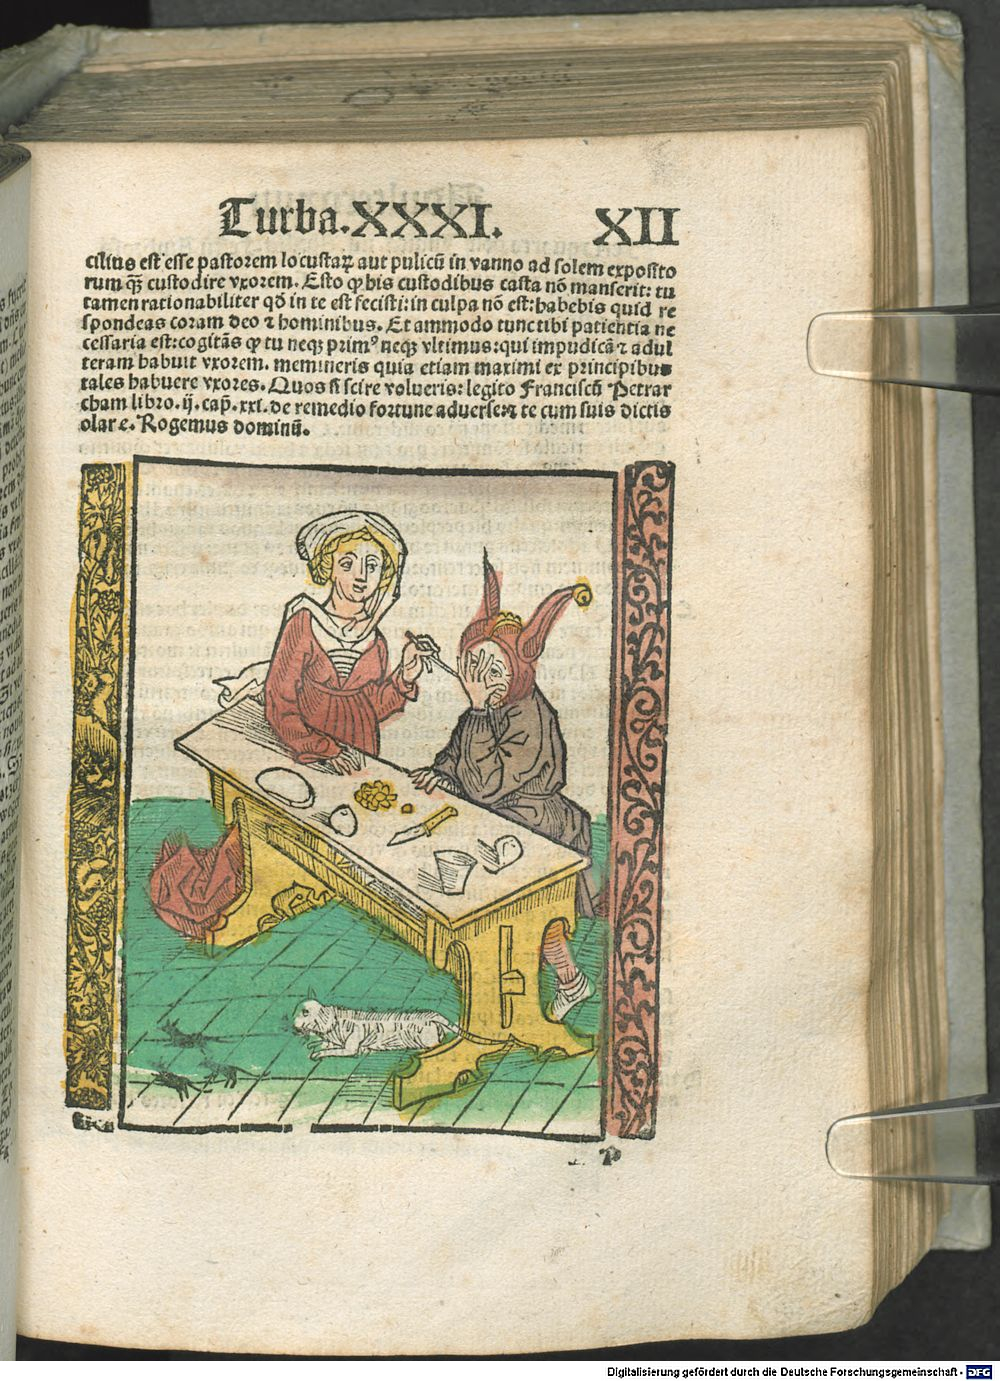 Turba.XXXI. XII
cilius est esse pastorem locustaꝝ aut pulicũ in vanno ad solem exposito
rum q̃ȝ custodire vxorem. Esto ꝙ his custodibus casta nõ manserit: tu
tamen rationabiliter qđ in te est fecisti: in culpa nõ est: habebis quid re
spondeas coram deo ⁊ hominibus. Et ammodo tunc tibi patientia ne
cessaria est: cogitãs ꝙ tu neqȝ primꝰ neqȝ vltimus: qui impudicã ⁊ adul
teram habuit vxorem. memineris quia etiam maximi ex principibus
tales habuere vxores. Quos si scire volueris: legito Franciscũ Petrar
cham libro. ij. cap̃. xxi. de remedio fortune aduerse: ⁊ te cum suis dictis
olare. Rogemus dominũ.
P
Digitalisierung gefördert durch die Deutsche Forschungsgemeinschaft - DFG